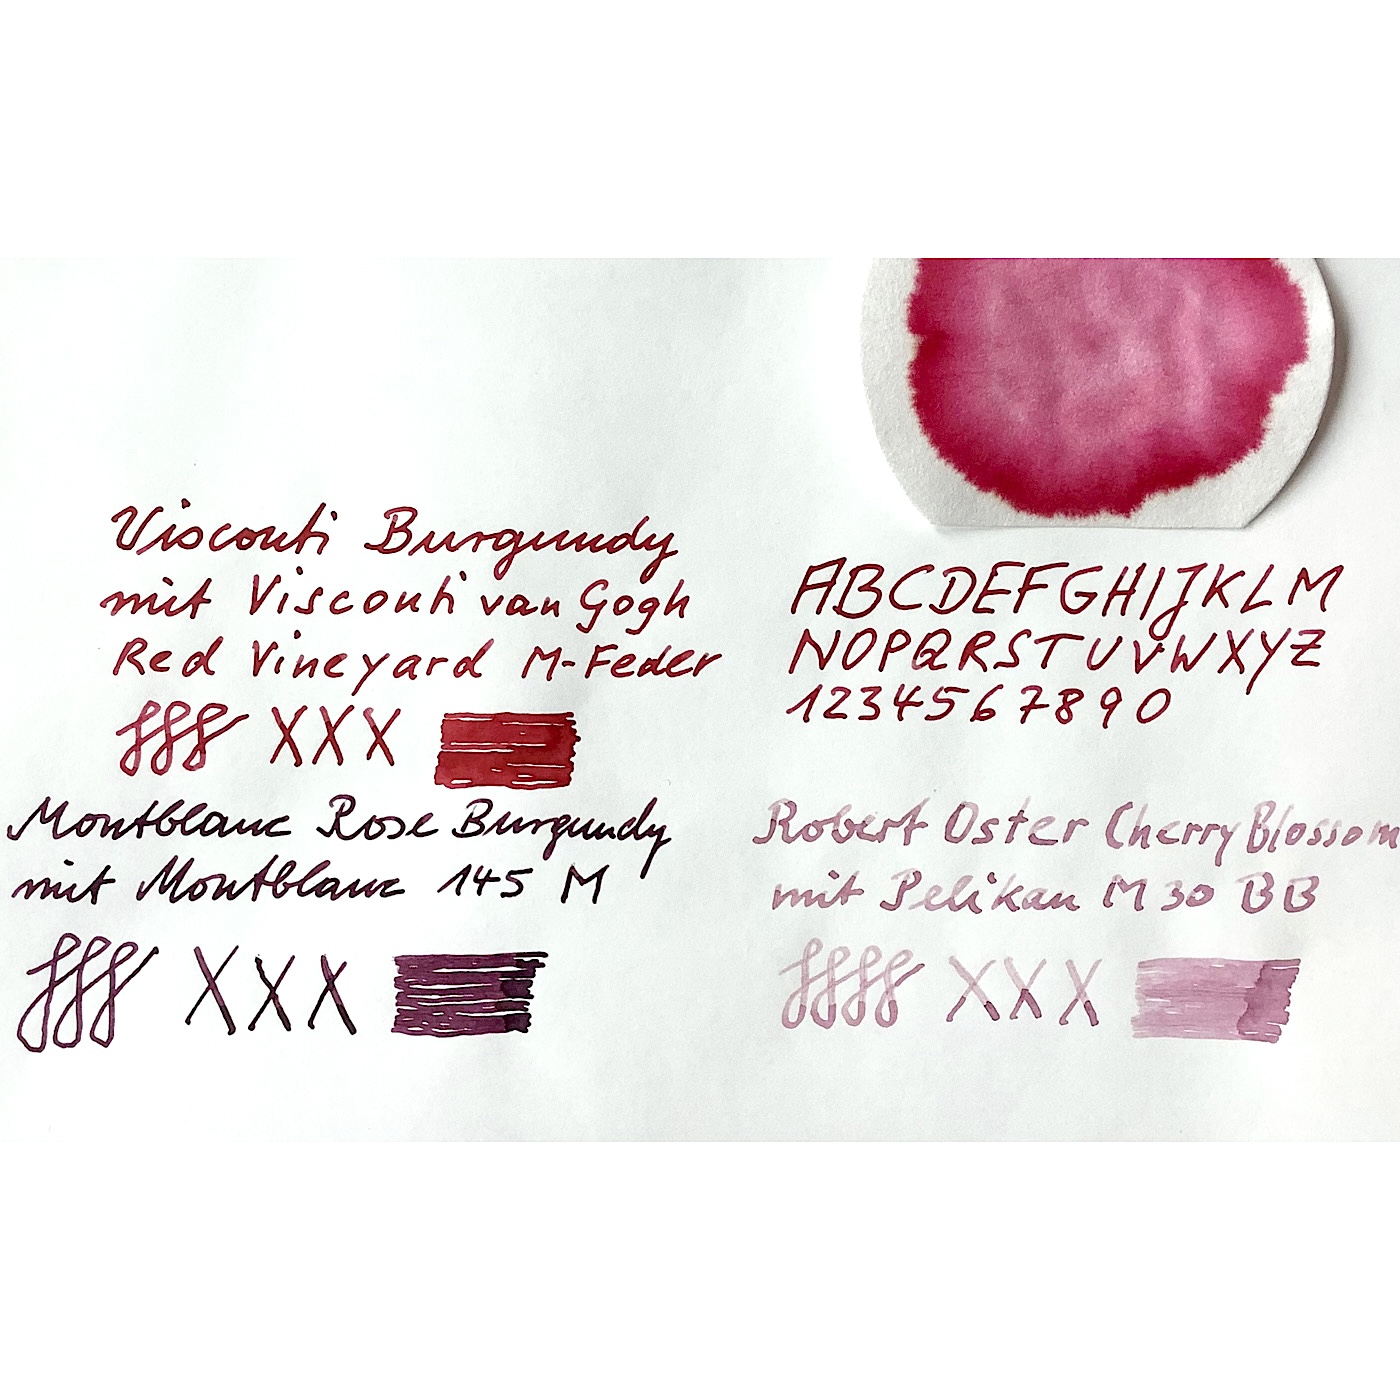 Visconti Burgundy
mit Visconti van Gogh
Red Vineyard M-Feder
XXX
ABCDEFGHIJKLM
NOPQRSTUVWXYZ
1234567890
Montblanc Rose Burgundy
mit Montblanc 145 M
XXX
Robert Oster Cherry Blossom
mit Pelikan M30 BB
XXX